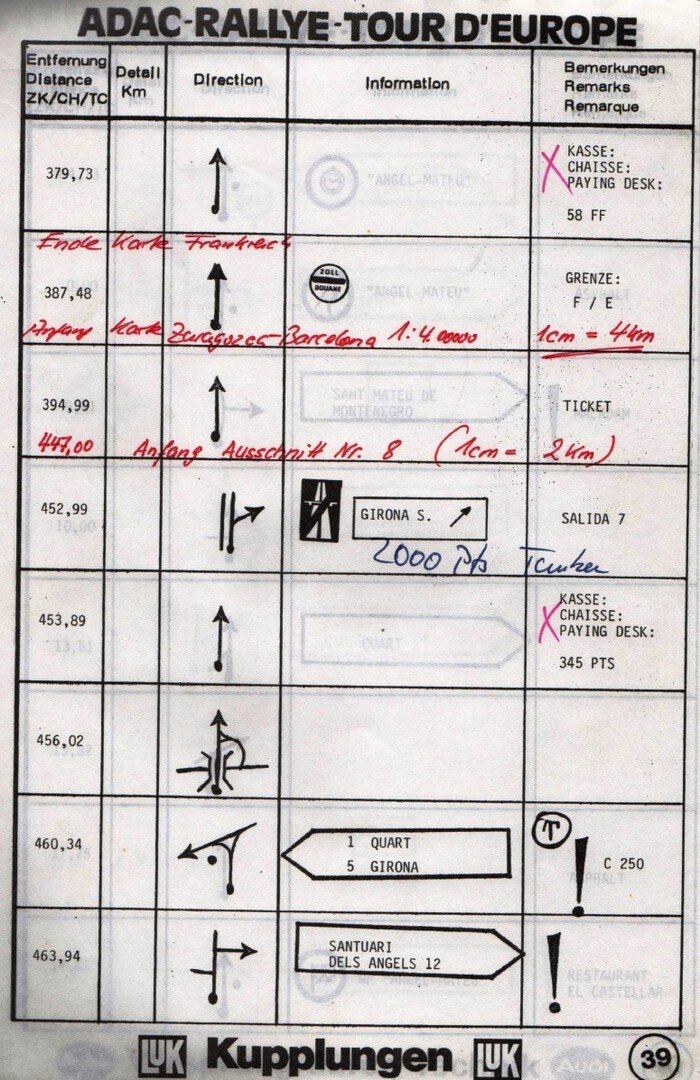 ADAC-RALLYE-TOUR D'EUROPE
Entfernung
Distance
ZK/CH/TC
Detail
Km
Direction
Information
Bemerkungen
Remarks
Remarque
379,73
KASSE:
CHAISSE:
PAYING DESK:
58 FF
Ende Karte Frankreich
387,48
ZOLL
DOUANE
GRENZE:
F / E
Anfang Karte Zaragoza-Barcelona 1:4.00000 1cm = 4km
394,99
TICKET
447,00 Anfang Ausschnitt Nr. 8 (1cm = 2km)
452,99
GIRONA S.
SALIDA 7
2000 Pts Tanken
453,89
KASSE:
CHAISSE:
PAYING DESK:
345 PTS
456,02
460,34
1 QUART
5 GIRONA
T
C 250
463,94
SANTUARI
DELS ANGELS 12
LUK Kupplungen LUK
39